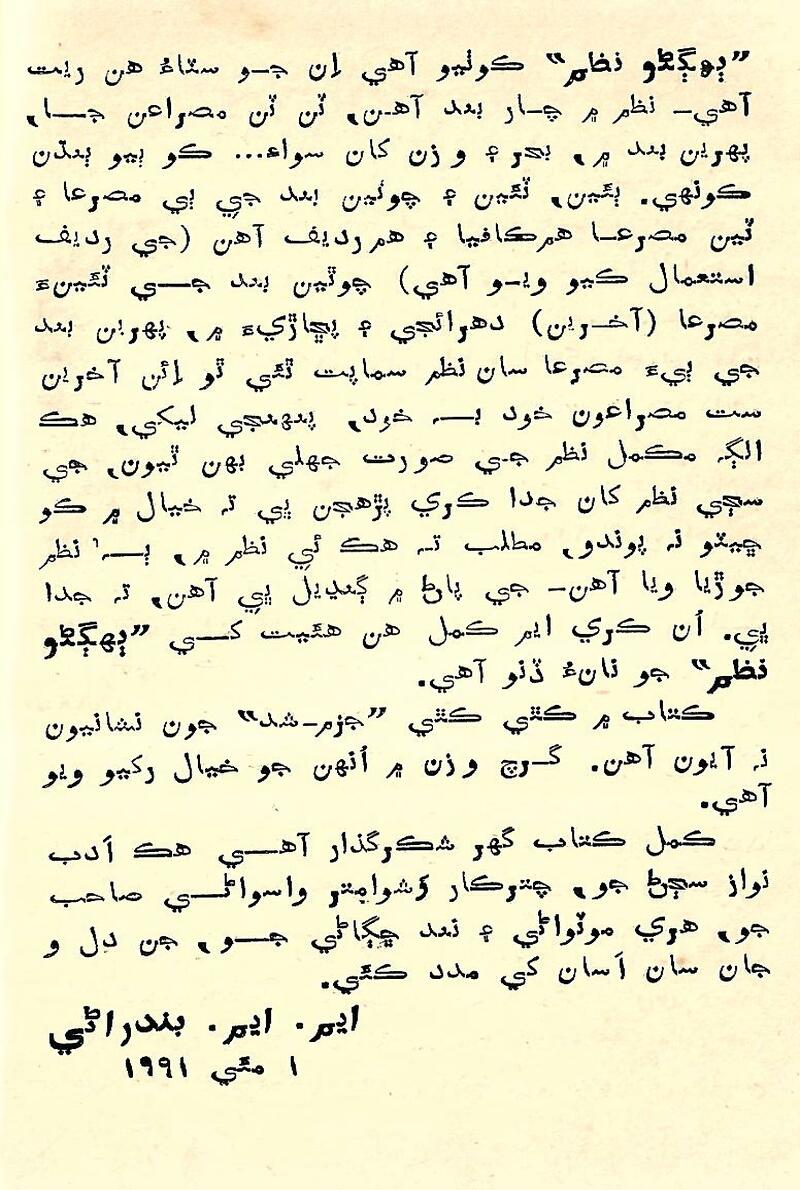 ”ٻهڳڻو نظم“ ڪوٺيو آهي اِن جو سٽاءُ هن ريت
آهي۔ نظم ۾ چار بند آهن، ٽن ٽن مصراعن جا،
پهرين بند ۾، بحر ۽ وزن کان سواءِ... ڪو ٻيو ٻنڌن
ڪونهي. ٻئين، ٽئين ۽ چوٿين بند جي ٻي مصرعا ۽
ٽين مصرعا هم ڪافيا ۽ هم رديف آهن (جي رديف
استعمال ڪيو ويو آهي) چوٿين بند جي ٽئينءَ
مصرعا (آخرين) دهرائجي ۽ پڇاڙيءَ ۾، پهرين بند
جي ٻيءَ مصرعا سان نظم سماپت ٿئي ٿو اِئن آخرين
ست مصراعون خود بہ خود، پنهنجي ليکي، هڪ
الڳ مڪمل نظم جي صورت جهلي بهن ٿيون، جي
سڄي نظم کان جدا ڪري پڙهجن ٻي تہ خيال ۾ ڪو
ڇيٽو نہ پوندو، مطلب تہ هڪ ئي نظم ۾، ٻہ نظم
جوڙيا ويا آهن۔ جي پاڻ ۾ ڳنڍيل ٻي آهن، تہ جدا
ٻي. اُن ڪري ايم ڪمل هن هئيت کي ”ٻهڳڻو
نظم“ جو نانءُ ڏنو آهي.
ڪتاب ۾ ڪٿي ڪٿي ”جزم۔شد“ جون نشانيون
نہ آيون آهن. گرچ وزن ۾ اُنهن جو خيال رکيو ويو
آهي.
ڪمل ڪتاب گهر شڪرگذار آهي هڪ اَدب
نواز سڄڻ جو، چترڪار وِشوامِتر واسواڻي صاحب
جو، هري موٽواڻي ۽ نند ڇڳاڻي جو، جن دل و
جان سان اَسان کي مدد ڪئي.
ايم. ايم. بندراڻي
١ مئي ١٩٩١